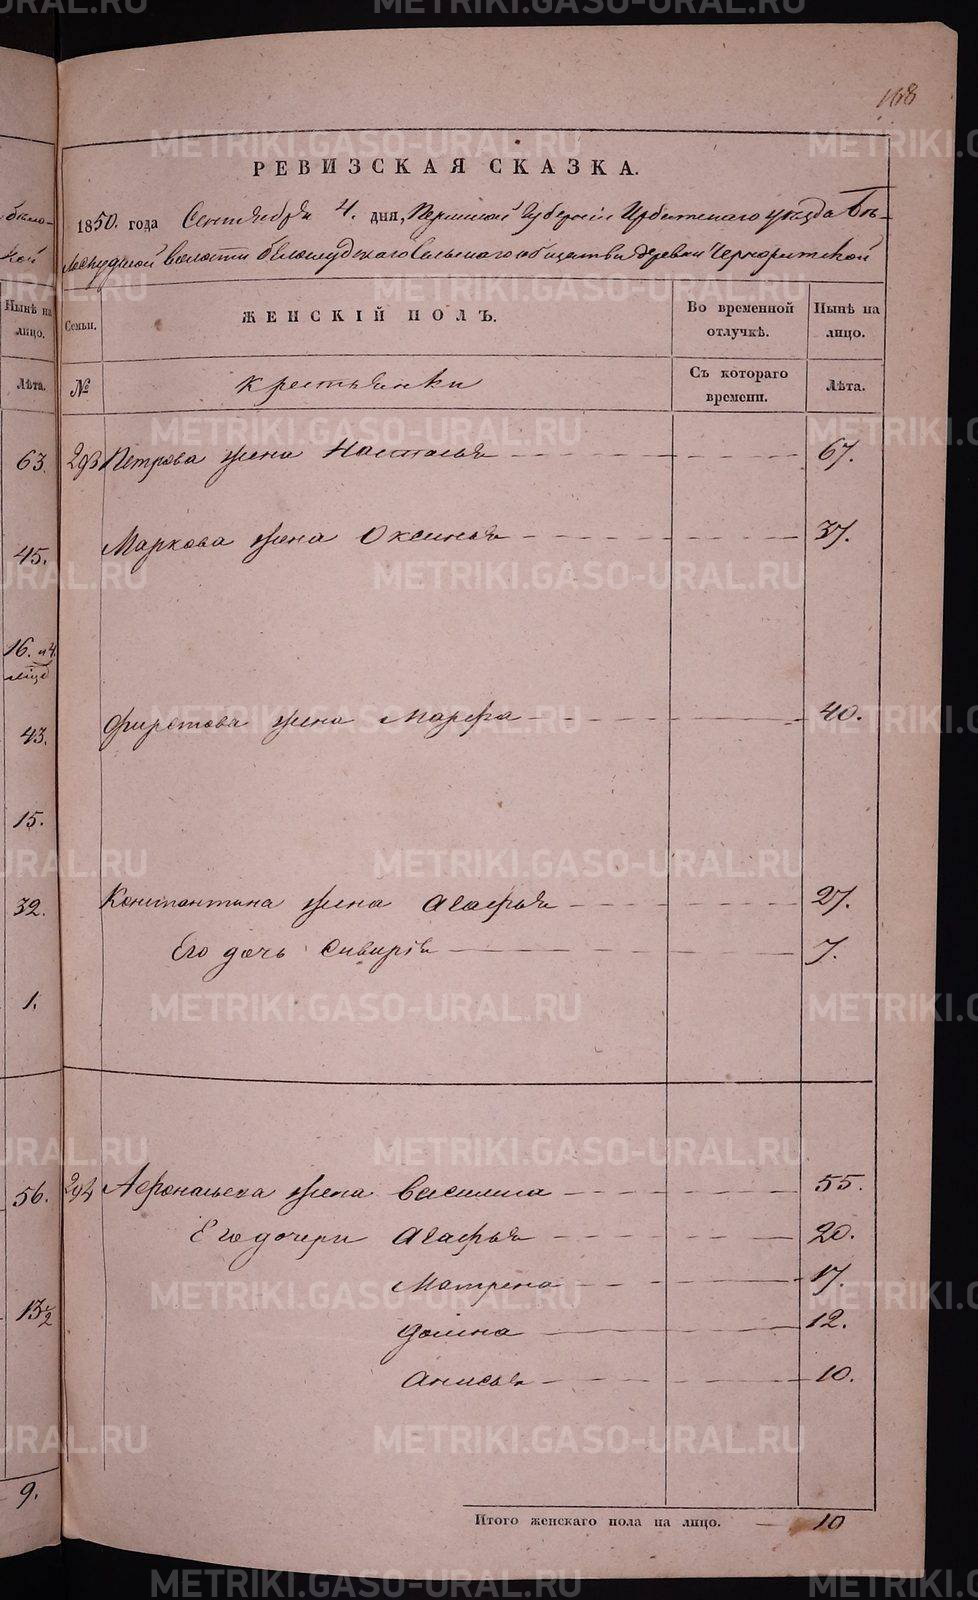 168
РЕВИЗСКАЯ СКАЗКА.
1850. года Сентября 4. дня, Пермской Губернии Ирбитскаго уезда Бѣ-
лослудской волости Белослудскаго Сельскаго общества деревни
Нынѣ на лицо.
Семьи.
ЖЕНСКІЙ ПОЛЪ.
Во временной отлучкѣ.
Нынѣ на лицо.
Лѣта.
№
крестьянки
Съ котораго времени.
Лѣта.
63. 293 Петрова жена Настасья 67.
45. Маркова жена Оксинья 37.
16. и 4.
43. Фирстова жена Марфа 40.
15.
32. Константина жена Агафья 27.
Его дочь Сивирія 7.
1.
56. 294 Афонасьева жена Василиса 55.
Его дочери Агафья 20.
Матрена 17.
13 1/2
Фолина 12.
Анисья 10.
9.
Итого женскаго пола на лицо. 10
METRIKI.GASO-URAL.RU